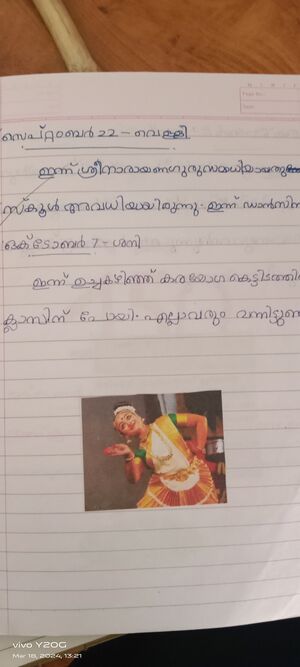 സെപ്റ്റംബർ 22 - വെള്ളി
ഇന്ന് ശ്രീനാരായണഗുരുസമാധിയായതു
സ്കൂൾ അവധിയായിരുന്നു. ഇന്ന് ഡാൻസിന
ഒക്ടോബർ 7 - ശനി
ഇന്ന് ഉച്ചകഴിഞ്ഞ് കരയോഗ കെട്ടിടത്തി
ക്ലാസിന് പോയി. എല്ലാവരും വന്നിട്ടുണ
vivo Y20G
Mar 18, 2024, 13:21